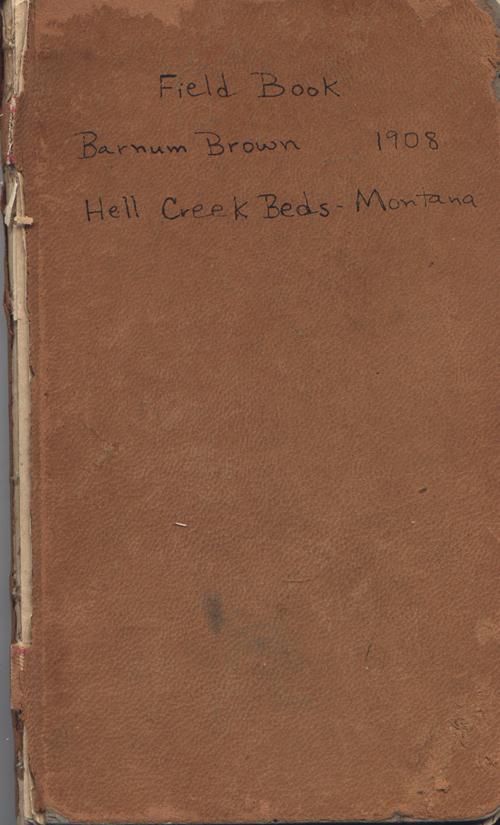 Field Book
Barnum Brown 1908
Hell Creek Beds - Montana